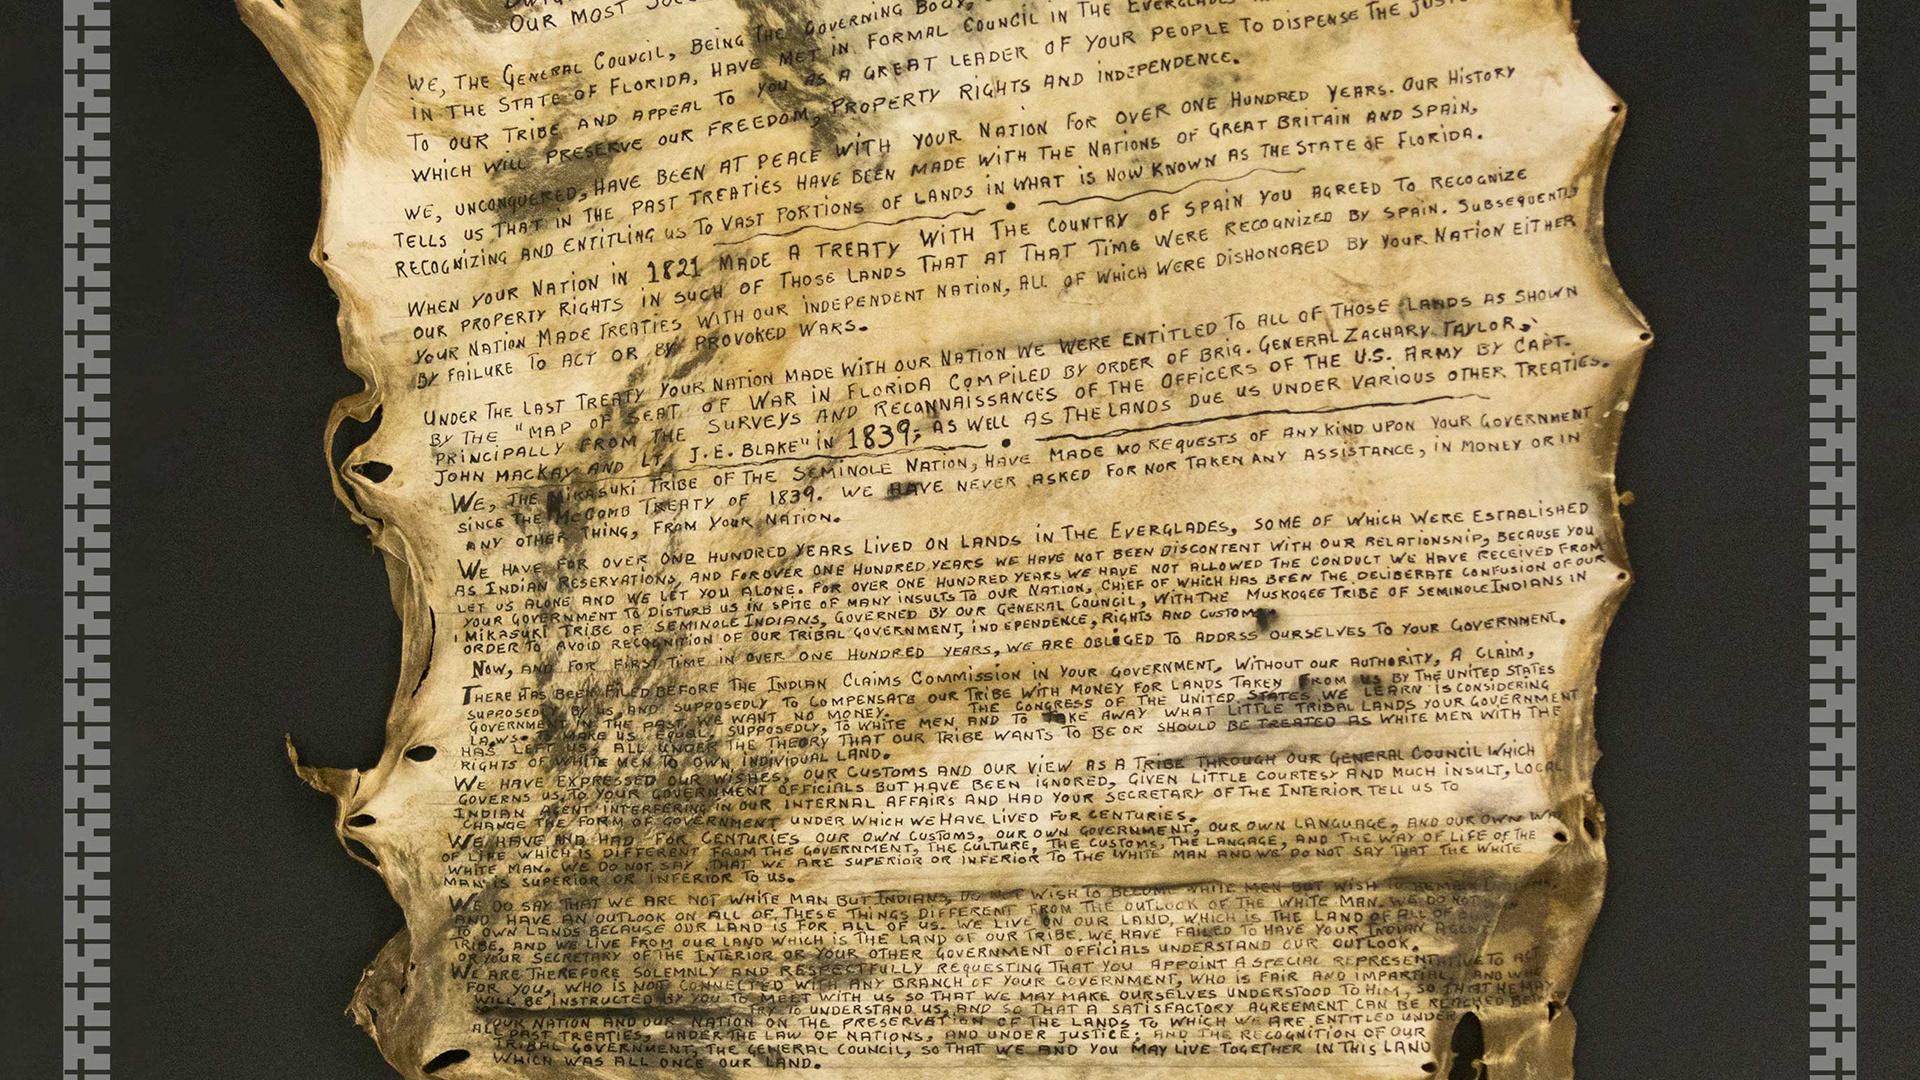 OUR MOST
WE, THE GENERAL COUNCIL, BEING THE GOVERNING BODY,
IN THE STATE OF FLORIDA, HAVE MET IN FORMAL COUNCIL IN THE EVERGLADES
TO OUR TRIBE AND APPEAL TO YOU AS A GREAT LEADER OF YOUR PEOPLE TO DISPENSE THE
WHICH WILL PRESERVE OUR FREEDOM, PROPERTY RIGHTS AND INDEPENDENCE.
WE, UNCONQUERED, HAVE BEEN AT PEACE WITH YOUR NATION FOR OVER ONE HUNDRED YEARS. OUR HISTORY
TELLS US THAT IN THE PAST TREATIES HAVE BEEN MADE WITH THE NATIONS OF GREAT BRITAIN AND SPAIN,
RECOGNIZING AND ENTITLING US TO VAST PORTIONS OF LANDS IN WHAT IS NOW KNOWN AS THE STATE OF FLORIDA.
WHEN YOUR NATION IN 1821 MADE A TREATY WITH THE COUNTRY OF SPAIN YOU AGREED TO RECOGNIZE
OUR PROPERTY RIGHTS IN SUCH OF THOSE LANDS THAT AT THAT TIME WERE RECOGNIZED BY SPAIN. SUBSEQUENTLY
YOUR NATION MADE TREATIES WITH OUR INDEPENDENT NATION, ALL OF WHICH WERE DISHONORED BY YOUR NATION EITHER
BY FAILURE TO ACT OR BY PROVOKED WARS.
UNDER THE LAST TREATY YOUR NATION MADE WITH OUR NATION WE WERE ENTITLED TO ALL OF THOSE LANDS AS SHOWN
BY THE "MAP OF SEAT OF WAR IN FLORIDA COMPILED BY ORDER OF BRIG. GENERAL ZACHARY TAYLOR,
PRINCIPALLY FROM THE SURVEYS AND RECONNAISSANCES OF THE OFFICERS OF THE U.S. ARMY BY CAPT.
JOHN MACKAY AND LT. J.E. BLAKE" IN 1839; AS WELL AS THE LANDS DUE US UNDER VARIOUS OTHER TREATIES.
WE, THE MIKASUKI TRIBE OF THE SEMINOLE NATION, HAVE MADE NO REQUESTS OF ANY KIND UPON YOUR GOVERNMENT
SINCE THE McCOMB TREATY OF 1839. WE HAVE NEVER ASKED FOR NOR TAKEN ANY ASSISTANCE, IN MONEY OR IN
ANY OTHER THING, FROM YOUR NATION.
WE HAVE FOR OVER ONE HUNDRED YEARS LIVED ON LANDS IN THE EVERGLADES, SOME OF WHICH WERE ESTABLISHED
AS INDIAN RESERVATIONS, AND FOR OVER ONE HUNDRED YEARS WE HAVE NOT BEEN DISCONTENT WITH OUR RELATIONSHIP, BECAUSE YOU
LET US ALONE AND WE LET YOU ALONE. FOR OVER ONE HUNDRED YEARS WE HAVE NOT ALLOWED THE CONDUCT WE HAVE RECEIVED FROM
YOUR GOVERNMENT TO DISTURB US IN SPITE OF MANY INSULTS TO OUR NATION, CHIEF OF WHICH HAS BEEN THE DELIBERATE CONFUSION OF OUR
MIKASUKI TRIBE OF SEMINOLE INDIANS, GOVERNED BY OUR GENERAL COUNCIL, WITH THE MUSKOGEE TRIBE OF SEMINOLE INDIANS IN
ORDER TO AVOID RECOGNITION OF OUR TRIBAL GOVERNMENT, INDEPENDENCE, RIGHTS AND CUSTOM
NOW, AND FOR FIRST TIME IN OVER ONE HUNDRED YEARS, WE ARE OBLIGED TO ADDRSS OURSELVES TO YOUR GOVERNMENT.
THERE HAS BEEN FILED BEFORE THE INDIAN CLAIMS COMMISSION IN YOUR GOVERNMENT, WITHOUT OUR AUTHORITY, A CLAIM,
SUPPOSEDLY BY US, AND SUPPOSEDLY TO COMPENSATE OUR TRIBE WITH MONEY FOR LANDS TAKEN FROM US BY THE UNITED STATES
GOVERNMENT IN THE PAST. WE WANT NO MONEY. THE CONGRESS OF THE UNITED STATES WE LEARN IS CONSIDERING
LAWS TO MAKE US EQUAL, SUPPOSEDLY, TO WHITE MEN AND TO TAKE AWAY WHAT LITTLE TRIBAL LANDS YOUR GOVERNMENT
HAS LEFT US, ALL UNDER THE THEORY THAT OUR TRIBE WANTS TO BE OR SHOULD BE TREATED AS WHITE MEN WITH THE
RIGHTS OF WHITE MEN TO OWN INDIVIDUAL LAND.
WE HAVE EXPRESSED OUR WISHES, OUR CUSTOMS AND OUR VIEW AS A TRIBE THROUGH OUR GENERAL COUNCIL WHICH
GOVERNS US, TO YOUR GOVERNMENT OFFICIALS BUT HAVE BEEN IGNORED, GIVEN LITTLE COURTESY AND MUCH INSULT, LOCAL
INDIAN AGENT INTERFERING IN OUR INTERNAL AFFAIRS AND HAD YOUR SECRETARY OF THE INTERIOR TELL US TO
CHANGE THE FORM OF GOVERNMENT UNDER WHICH WE HAVE LIVED FOR CENTURIES.
WE HAVE AND HAD FOR CENTURIES OUR OWN CUSTOMS, OUR OWN GOVERNMENT, OUR OWN LANGUAGE, AND OUR OWN WAY
OF LIFE WHICH IS DIFFERENT FROM THE GOVERNMENT, THE CULTURE, THE CUSTOMS, THE LANGAGE, AND THE WAY OF LIFE OF THE
WHITE MAN. WE DO NOT SAY THAT WE ARE SUPERIOR OR INFERIOR TO THE WHITE MAN AND WE DO NOT SAY THAT THE WHITE
MAN IS SUPERIOR OR INFERIOR TO US.
WE DO SAY THAT WE ARE NOT WHITE MAN BUT INDIANS, DO NOT WISH TO BECOME WHITE MEN BUT WISH TO REMAIN
AND HAVE AN OUTLOOK ON ALL OF THESE THINGS DIFFERENT FROM THE OUTLOOK OF THE WHITE MAN. WE DO NOT
TO OWN LANDS BECAUSE OUR LAND IS FOR ALL OF US. WE LIVE ON OUR LAND, WHICH IS THE LAND OF ALL OF
TRIBE, AND WE LIVE FROM OUR LAND WHICH IS THE LAND OF OUR TRIBE. WE HAVE FAILED TO HAVE YOUR INDIAN AGENT
OR YOUR SECRETARY OF THE INTERIOR OR YOUR OTHER GOVERNMENT OFFICIALS UNDERSTAND OUR OUTLOOK.
WE ARE THEREFORE SOLEMNLY AND RESPECTFULLY REQUESTING THAT YOU APPOINT A SPECIAL REPRESENTATIVE TO ACT
FOR YOU, WHO IS NOT CONNECTED WITH ANY BRANCH OF YOUR GOVERNMENT, WHO IS FAIR AND IMPARTIAL, AND WHO
WILL BE INSTRUCTED BY YOU TO MEET WITH US SO THAT WE MAY MAKE OURSELVES UNDERSTOOD TO HIM, SO THAT HE MAY
TRY TO UNDERSTAND US, AND SO THAT A SATISFACTORY AGREEMENT CAN BE REACHED
YOUR NATION AND OUR NATION ON THE PRESERVATION OF THE LANDS TO WHICH WE ARE ENTITLED UNDER
ALL PAST TREATIES, UNDER THE LAW OF NATIONS, AND UNDER JUSTICE; AND THE RECOGNITION OF OUR
TRIBAL GOVERNMENT, THE GENERAL COUNCIL, SO THAT WE AND YOU MAY LIVE TOGETHER IN THIS LAND
WHICH WAS ALL ONCE OUR LAND.